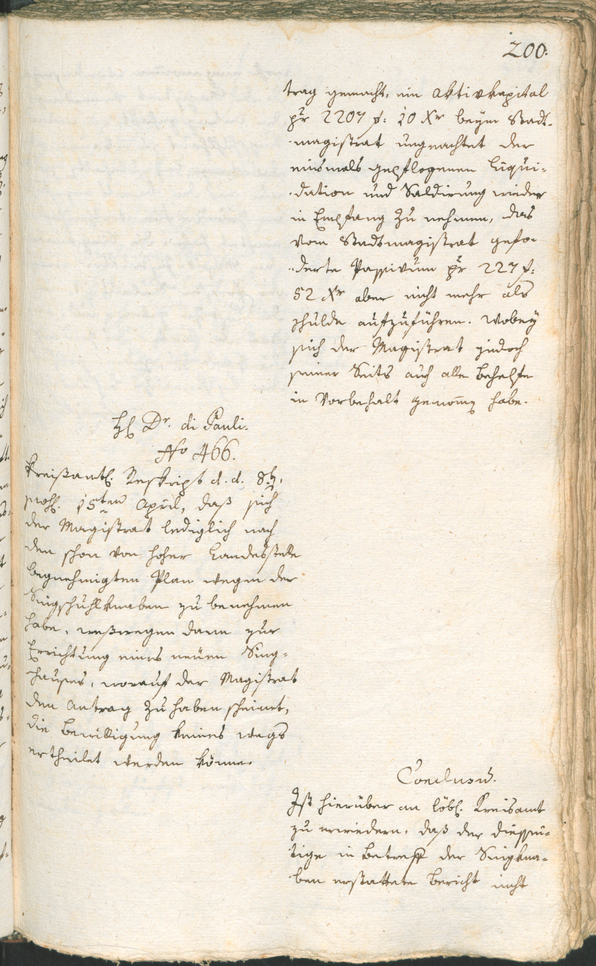 200.
trag gemacht, ein Aktivkapital
pr 2207 f: 10 Xr beym Stadt-
magistrat ungeachtet der
einsmals gepflogenen Liqui-
dation und Saldirung wieder
in Empfang zu nehmen, das
vom Stadtmagistrat gefo-
derte Passivum pr 227 f:
52 Xr aber nicht mehr als
schulde aufzuführen. wobey
sich der Magistrat jedoch
seiner Seits auch alle Behelfe
in Vorbehalt genomen habe.
H Dr. di Pauli.
No 466.
Kreisamtl. Reskript d. d. 8t,
15ten April, daß sich
der Magistrat lediglich nach
dem schon von hoher Landesstelle
begnehmigten Plan wegen der
Singschuhlknaben zu benehmen
habe, weßwegen dann zur
Errichtung eines neuen Sing-
hauses, worauf der Magistrat
den Antrag zu haben scheint,
die Bewilligung keines wegs
ertheilet werden könne.
Conclusum.
Ist hierüber an löbl. Kreisamt
zu erwiedern, daß der diessei-
tige in Betreff der Singkna-
ben erstattete Bericht nicht